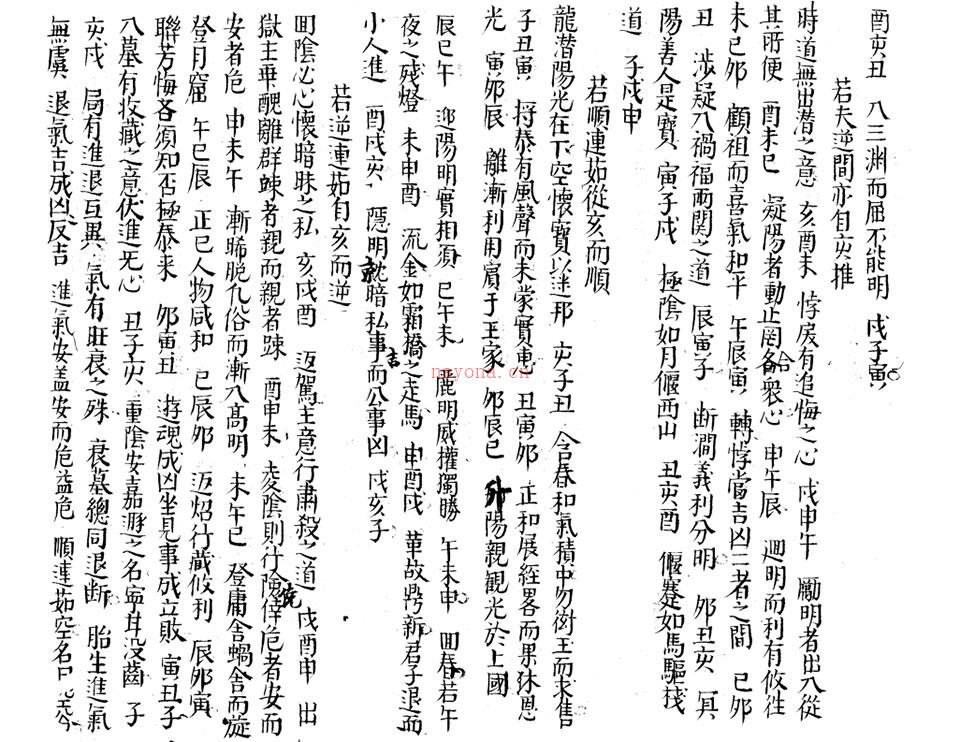 酉亥丑 入三渊而屈不能明 戌子寅
若夫逆間亦自亥推
時道無出潜之意 亥酉未 悖戾有追悔之心 戌申午 勵明者出入從
其所便 酉未巳 凝陽者動止罔各衆心 合 申午辰 迴明而利有攸往
未巳卯 顧祖而喜氣和平 午辰寅 轉悖當吉凶二者之間 巳卯
丑 涉疑入禍福両関之道 辰寅子 断澗義利分明 卯丑亥 冥
陽善人是寳 寅子戌 極陰如月偃西山 丑亥酉 偃蹇如馬驅棧
道 子戌申
若順連茹從亥而順
龍潜陽光在下空懷寳以迷邦 亥子丑 含春和氣積中勿衒玉而求售
子丑寅 将泰有風聲而未蒙實惠 丑寅卯 正和展經畧而果沐恩
光 寅卯辰 離漸利用賓于王家 卯辰巳 升陽親観光於上國
辰巳午 迎陽明實相須 巳午未 麗明威權獨勝 午未申 囬春若午
夜之残燈 未申酉 流金如霜橋之走馬 申酉戌 革故鼎新君子退而
小人進 酉戌亥 隱明就暗私事吉而公事凶 戌亥子
若逆連茹自亥而逆
囬陰必心懷暗昧之私 亥戌酉 返駕主意行肅殺之道 戌酉申 出
獄主乖醜離群踈者親而親者踈 酉申未 凌陰則行險侥倖危者安而
安者危 申未午 漸晞脱凢俗而漸入髙明 未午巳 登庸舎蝸舎而旋
登月窟 午巳辰 正巳人物咸和 巳辰卯 返炤行藏攸利 辰卯寅
聮芳悔吝須知否極泰来 卯寅丑 遊魂成凶坐見事成立敗 寅丑子
入墓有收藏之意伏進无心 丑子亥 重陰安嘉遯之名寜甘没齒 子
亥戌 局有進退互異 氣有旺衰之殊 衰墓總同退断 胎生進氣
無虞 退氣吉成凶凶反吉 進氣安益安而危益危 順連茹空名
mayona.cn